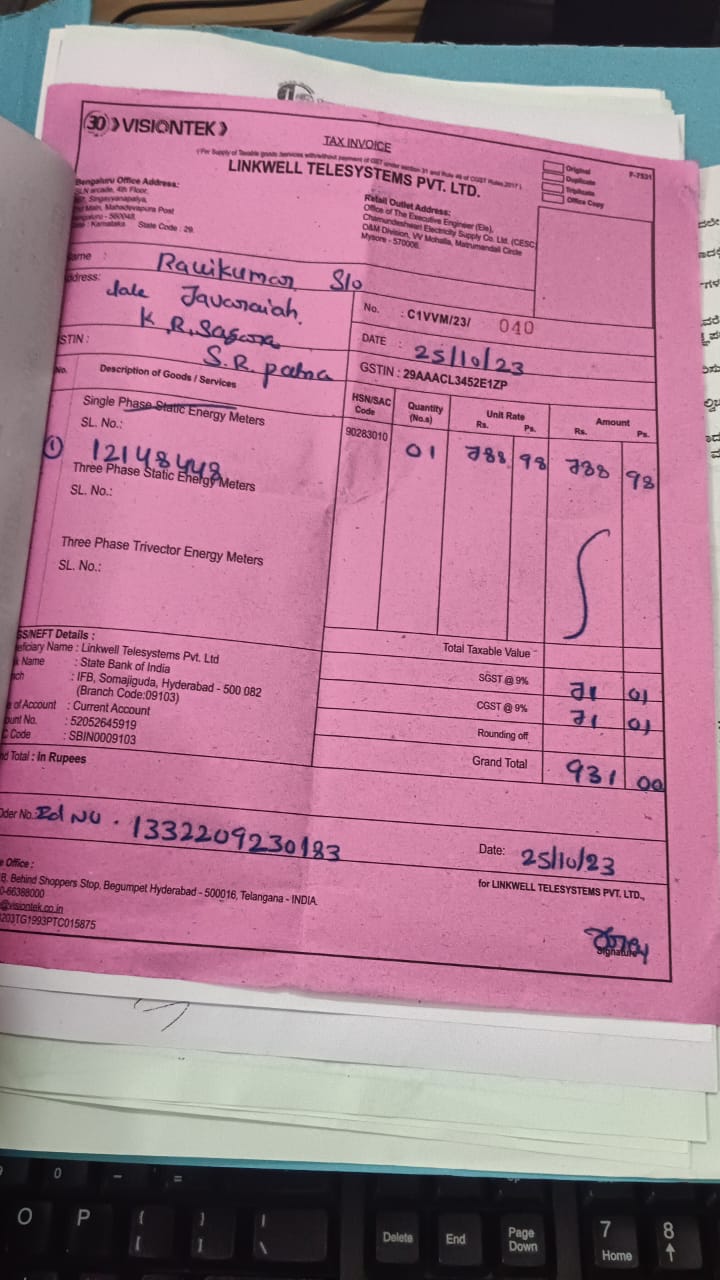 30 VISIONTEK
TAX INVOICE
(For Supply of Taxable goods Services with/without payment of GST under section 31 and Rule 46 of CGST Rules, 2017)
LINKWELL TELESYSTEMS PVT. LTD.
Original
Duplicate
Triplicate
Office Copy
F-7531
Bengaluru Office Address:
arcade, 4th Floor,
Singayyanapalya,
Main, Mahadevapura Post
- 560048.
: Karnataka State Code : 29
Retail Outlet Address:
Office of The Executive Engineer (Ele),
Chamundeshwari Electricity Supply Co. Ltd. (CESC)
O&M Division, VV Mohalla, Matrumandali Circle
Mysore - 570006.
ame : Ravikumar S/o
ddress: late Javaraiah
K R Sagara
S.R. patna
No. : C1VVM/23/ 040
DATE : 25/10/23
STIN :
GSTIN : 29AAACL3452E1ZP
No. Description of Goods / Services
HSN/SAC Code Quantity (No.s) Unit Rate Rs. Ps. Amount Rs. Ps.
Single Phase Static Energy Meters
90283010 01 788 98 788 98
SL. No.:
① 12148448
Three Phase Static Energy Meters
SL. No.:
Three Phase Trivector Energy Meters
SL. No.:
Total Taxable Value
SGST @ 9% 71 01
CGST @ 9% 71 01
Rounding off
Grand Total 931 00
S/NEFT Details :
eficiary Name : Linkwell Telesystems Pvt. Ltd
k Name : State Bank of India
nch : IFB, Somajiguda, Hyderabad - 500 082
(Branch Code:09103)
e of Account : Current Account
ount No. : 52052645919
Code : SBIN0009103
nd Total : In Rupees
der No.: Rd No. 1332209230183
Date: 25/10/23
e Office :
B, Behind Shoppers Stop, Begumpet Hyderabad - 500016, Telangana - INDIA.
0-66388000
@visiontek.co.in
203TG1993PTC015875
for LINKWELL TELESYSTEMS PVT. LTD.,
Signature
0 - =
O P { [ } ] | \
Delete End Page Down 7 Home 8